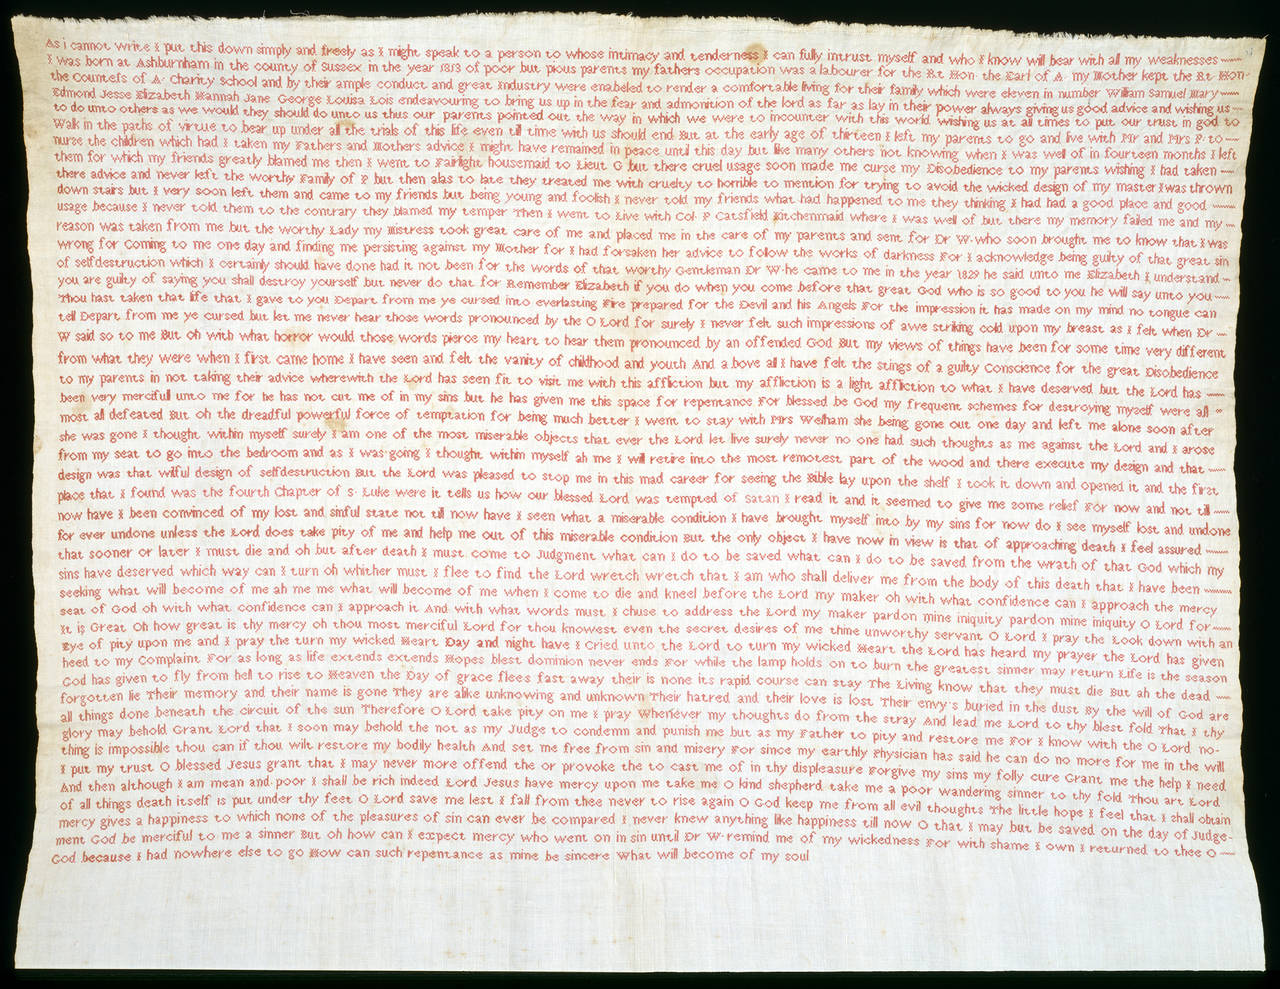 As i cannot write I put this down simply and freely as I might speak to a person to whose intimacy and tenderness I can fully intrust myself and who I know will bear with all my weaknesses
I was born at Ashburnham in the county of Sussex in the year 1813 of poor but pious parents my fathers occupation was a labourer for the Rt Hon the Earl of A my Mother kept the Rt Hon
the Countess of A Charity School and by their ample conduct and great Industry were enabeled to render a comfortable living for their family which were eleven in number William Samuel Mary
Edmond Jesse Elizabeth Hannah Jane George Louisa Lois endeavouring to bring us up in the fear and admonition of the lord as far as lay in their power always giving us good advice and wishing us
to do unto others as we would they should do unto us thus our parents pointed out the way in which we were to incounter with this world wishing us at all times to put our trust in god to
Walk in the paths of virtue to bear up under all the trials of this life even till time with us should end But at the early age of thirteen I left my parents to go and live with Mr and Mrs P to
nurse the children which had I taken my Fathers and Mothers advice I might have remained in peace until this day but like many others not knowing when I was well of in fourteen months I left
them for which my friends greatly blamed me then I went to Fairlight housemaid to Lieut G but there cruel usage soon made me curse my Disobedience to my parents wishing I had taken
there advice and never left the worthy Family of P but then alas to late they treated me with cruelty to horrible to mention for trying to avoid the wicked design of my master I was thrown
down stairs but I very soon left them and came to my friends but being young and foolish I never told my friends what had happened to me they thinking I had had a good place and good
usage because I never told them to the contrary they blamed my temper Then I went to Live with Col P Catsfield kitchenmaid where I was well of but there my memory failed me and my
reason was taken from me but the worthy Lady my Mistress took great care of me and placed me in the care of my parents and sent for Dr W who soon brought me to know that I was
wrong for Coming to me one day and finding me persisting against my Mother for I had forsaken her advice to follow the works of darkness For I acknowledge being guilty of that great sin
of selfdestruction which I certainly should have done had it not been for the words of that worthy Gentleman Dr W he came to me in the year 1829 he said unto me Elizabeth I understand
you are guilty of saying you shall destroy yourself but never do that for Remember Elizabeth if you do when you come before that great God who is so good to you he will say unto you
Thou hast taken that life that I gave to you Depart from me ye cursed into everlasting Fire prepared for the Devil and his Angels For the impression it has made on my mind no tongue can
tell Depart from me ye cursed but let me never hear those words pronounced by the O Lord for surely I never felt such impressions of awe striking cold upon my breast as I felt when Dr
W said so to me But oh with what horror would those words pierce my heart to hear them pronounced by an offended God But my views of things have been for some time very different
from what they were when I first came home I have seen and felt the vanity of childhood and youth And a bove all I have felt the stings of a guilty Conscience for the great Disobedience
to my parents in not taking their advice wherewith the Lord has seen fit to visit me with this affliction but my affliction is a light affliction to what I have deserved but the Lord has
been very mercifull unto me for he has not cut me of in my sins but he has given me this space for repentance For blessed be God my frequent schemes for destroying myself were all
most all defeated But oh the dreadful powerful force of temptation for being much better I went to stay with Mrs Welham she being gone out one day and left me alone soon after
she was gone I thought within myself surely I am one of the most miserable objects that ever the Lord let live surely never no one had such thoughts as me against the Lord and I arose
from my seat to go into the bedroom and as I was going I thought within myself ah me I will retire into the most remotest part of the wood and there execute my design and that
design was that wilful design of selfdestruction But the Lord was pleased to stop me in this mad career for seeing the Bible lay upon the shelf I took it down and opened it and the first
place that I found was the fourth Chapter of S. Luke were it tells us how our blessed Lord was tempted of Satan I read it and it seemed to give me some relief For now and not till
now have I been convinced of my lost and sinful state not till now have I seen what a miserable condition I have brought myself into by my sins for now do I see myself lost and undone
for ever undone unless the Lord does take pity of me and help me out of this miserable condition But the only object I have now in view is that of approaching death I feel assured
that sooner or later I must die and oh but after death I must come to Judgment what can I do to be saved what can I do to be saved from the wrath of that God which my
sins have deserved which way can I turn oh whither must I flee to find the Lord wretch wretch that I am who shall deliver me from the body of this death that I have been
seeking what will become of me ah me me what will become of me when I come to die and kneel before the Lord my maker oh with what confidence can I approach the mercy
seat of God oh with what confidence can I approach it And with what words must I chuse to address the Lord my maker pardon mine iniquity pardon mine iniquity O Lord for
It is Great Oh how great is thy mercy oh thou most merciful Lord for thou knowest even the secret desires of me thine unworthy servant O Lord I pray the Look down with an
Eye of pity upon me and I pray the turn my wicked Heart Day and night have I Cried unto the Lord to turn my wicked Heart the Lord has heard my prayer the Lord has given
heed to my Complaint For as long as life extends extends Hopes blest dominion never ends For while the lamp holds on to burn the greatest sinner may return Life is the season
God has given to fly from hell to rise to Heaven the Day of grace flees fast away their is none its rapid course can stay The Living know that they must die But ah the dead
forgotten lie Their memory and their name is gone They are alike unknowing and unknown Their hatred and their love is lost Their envy's buried in the dust By the will of God are
all things done beneath the circuit of the sun Therefore O Lord take pity on me I pray Whenever my thoughts do from the stray And lead me Lord to thy blest fold That I thy
glory may behold Grant Lord that I soon may behold the not as my Judge to condemn and punish me but as my Father to pity and restore me For I know with the O Lord no-
thing is impossible thou can if thou wilt restore my bodily health And set me free from sin and misery For since my earthly Physician has said he can do no more for me in the will
I put my trust O blessed Jesus grant that I may never more offend the or provoke the to cast me of in thy displeasure Forgive my sins my folly cure Grant me the help I need
And then although I am mean and poor I shall be rich indeed Lord Jesus have mercy upon me take me O kind shepherd take me a poor wandering sinner to thy fold Thou art Lord
of all things death itself is put under thy feet O Lord save me lest I fall from thee never to rise again O God keep me from all evil thoughts The little hope I feel that I shall obtain
mercy gives a happiness to which none of the pleasures of sin can ever be compared I never knew anything like happiness till now O that I may but be saved on the day of Judge-
ment God be merciful to me a sinner But oh how can I expect mercy who went on in sin until Dr W remind me of my wickedness For with shame I own I returned to thee O
God because I had nowhere else to go How can such repentance as mine be sincere What will become of my soul